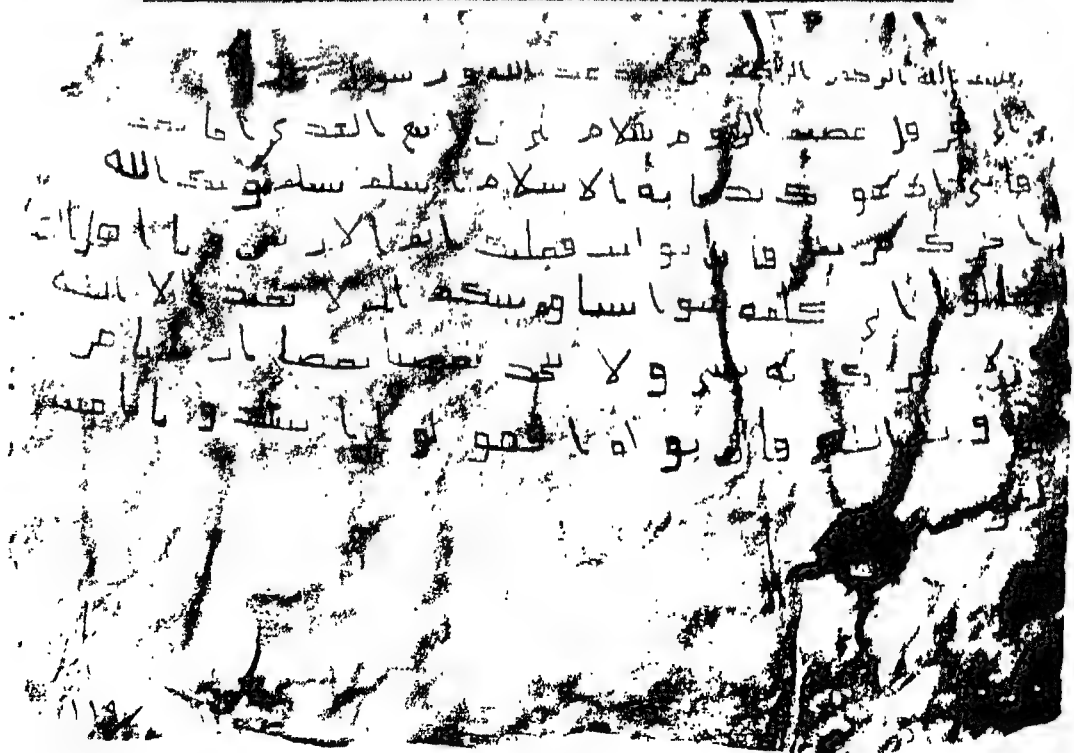 بسم الله الرحمن الرحيم من محمد عبد الله ورسوله
الى هرقل عظيم الروم سلام على من اتبع الهدى اما بعد
فانى ادعوك بدعايه الاسلام اسلم تسلم يوتك الله
اجرك مرتين فان توليت فعليك اثم الاريسين ويا اهل
تعالوا الى كلمه سوا بيننا وبينكم الا نعبد الا الله
ولا نشرك به شيا ولا يتخذ بعضنا بعضا اربابا من
دون الله فان تولوا فقولوا اشهدوا بانا مسلمون